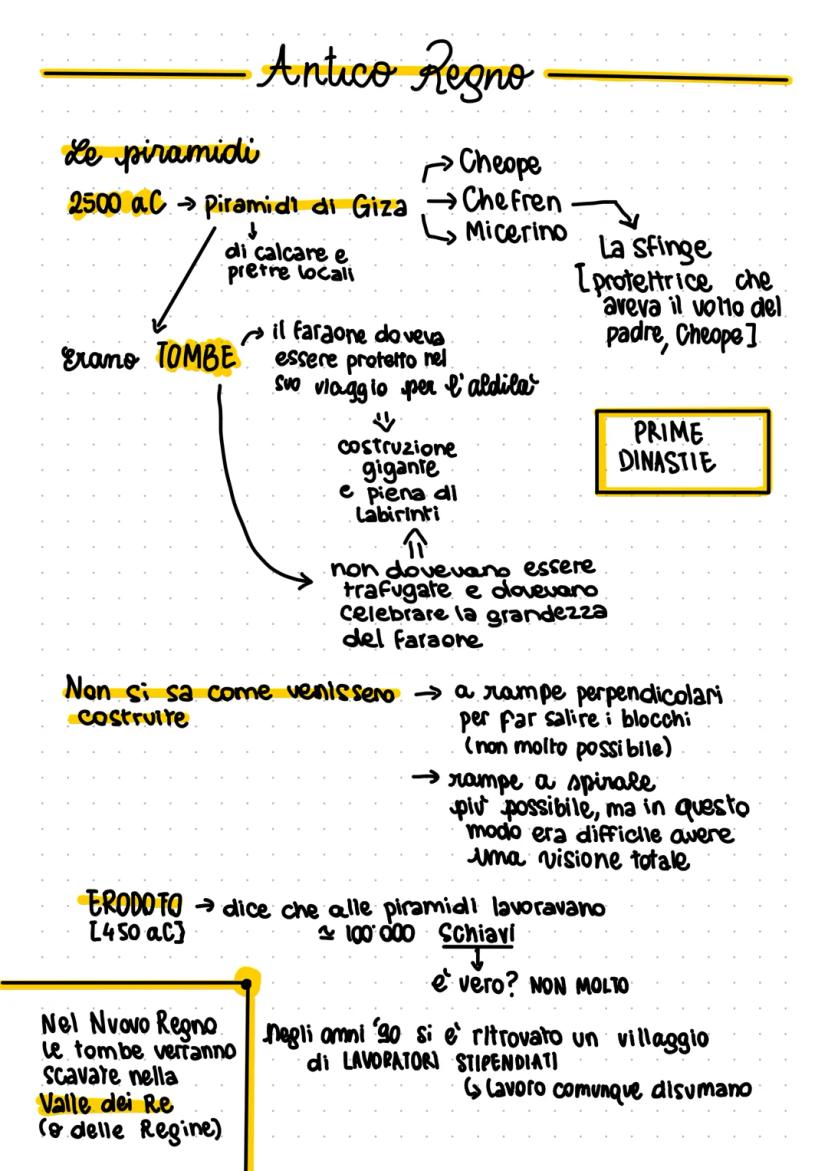 Antico Regno
Le piramidi
2500 aC → Piramidi di Giza
→ Cheope
→ Chefren
→ Micerino
La Sfinge
[protettrice che
aveva il volto del
padre, Cheope]
di calcare e
pietre locali
Erano TOMBE
il faraone doveva
essere protetto nel
suo viaggio per l'aldilà
costruzione
gigante
e piena di
labirinti
PRIME
DINASTIE
non dovevano essere
trafugate e dovevano
celebrare la grandezza
del faraone
Non si sa come venissero
costruite
→ a rampe perpendicolari
per far salire i blocchi
(non molto possibile)
→ rampe a spirale
più possibile, ma in questo
modo era difficile avere
una visione totale
ERODOTO → dice che alle piramidi lavoravano
[450 aC]
≃ 100'000 Schiavi
è vero? NON MOLTO
negli anni '90 si è ritrovato un villaggio
di LAVORATORI STIPENDIATI
↳ lavoro comunque disumano
Nel Nuovo Regno
le tombe verranno
scavate nella
Valle dei Re
(o delle Regine)